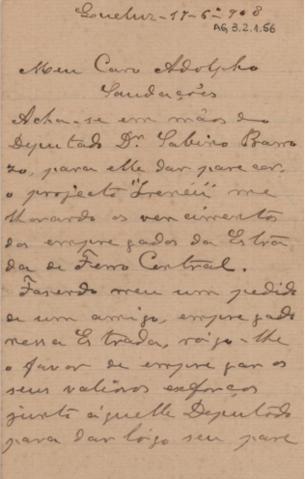 Queluz - 17-6-908
AG, 3.2.1.56
Meu Caro Adolpho
Saudações
Acha-se em mãos do
Deputado Dr. Sabino Barro
zo, para elle dar parecer,
o projecto "Irenêu" me
lhorando os vencimentos
dos empregados da Estra
da de Ferro Central.
Fazendo meu um pedido
de um amigo, empregado
nessa Estrada, rógo-lhe
o favor de empregar os
seus valiosos exforços
junto áquelle Deputado
para dar lógo seu pare